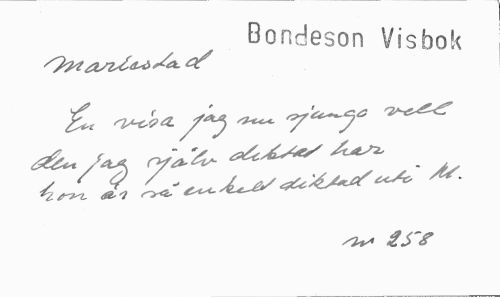 Bondeson Visbok
Mariestad
En visa jag nu sjunga vell
den jag själv diktat har
hon är så enkelt diktad uti M.
nr 258